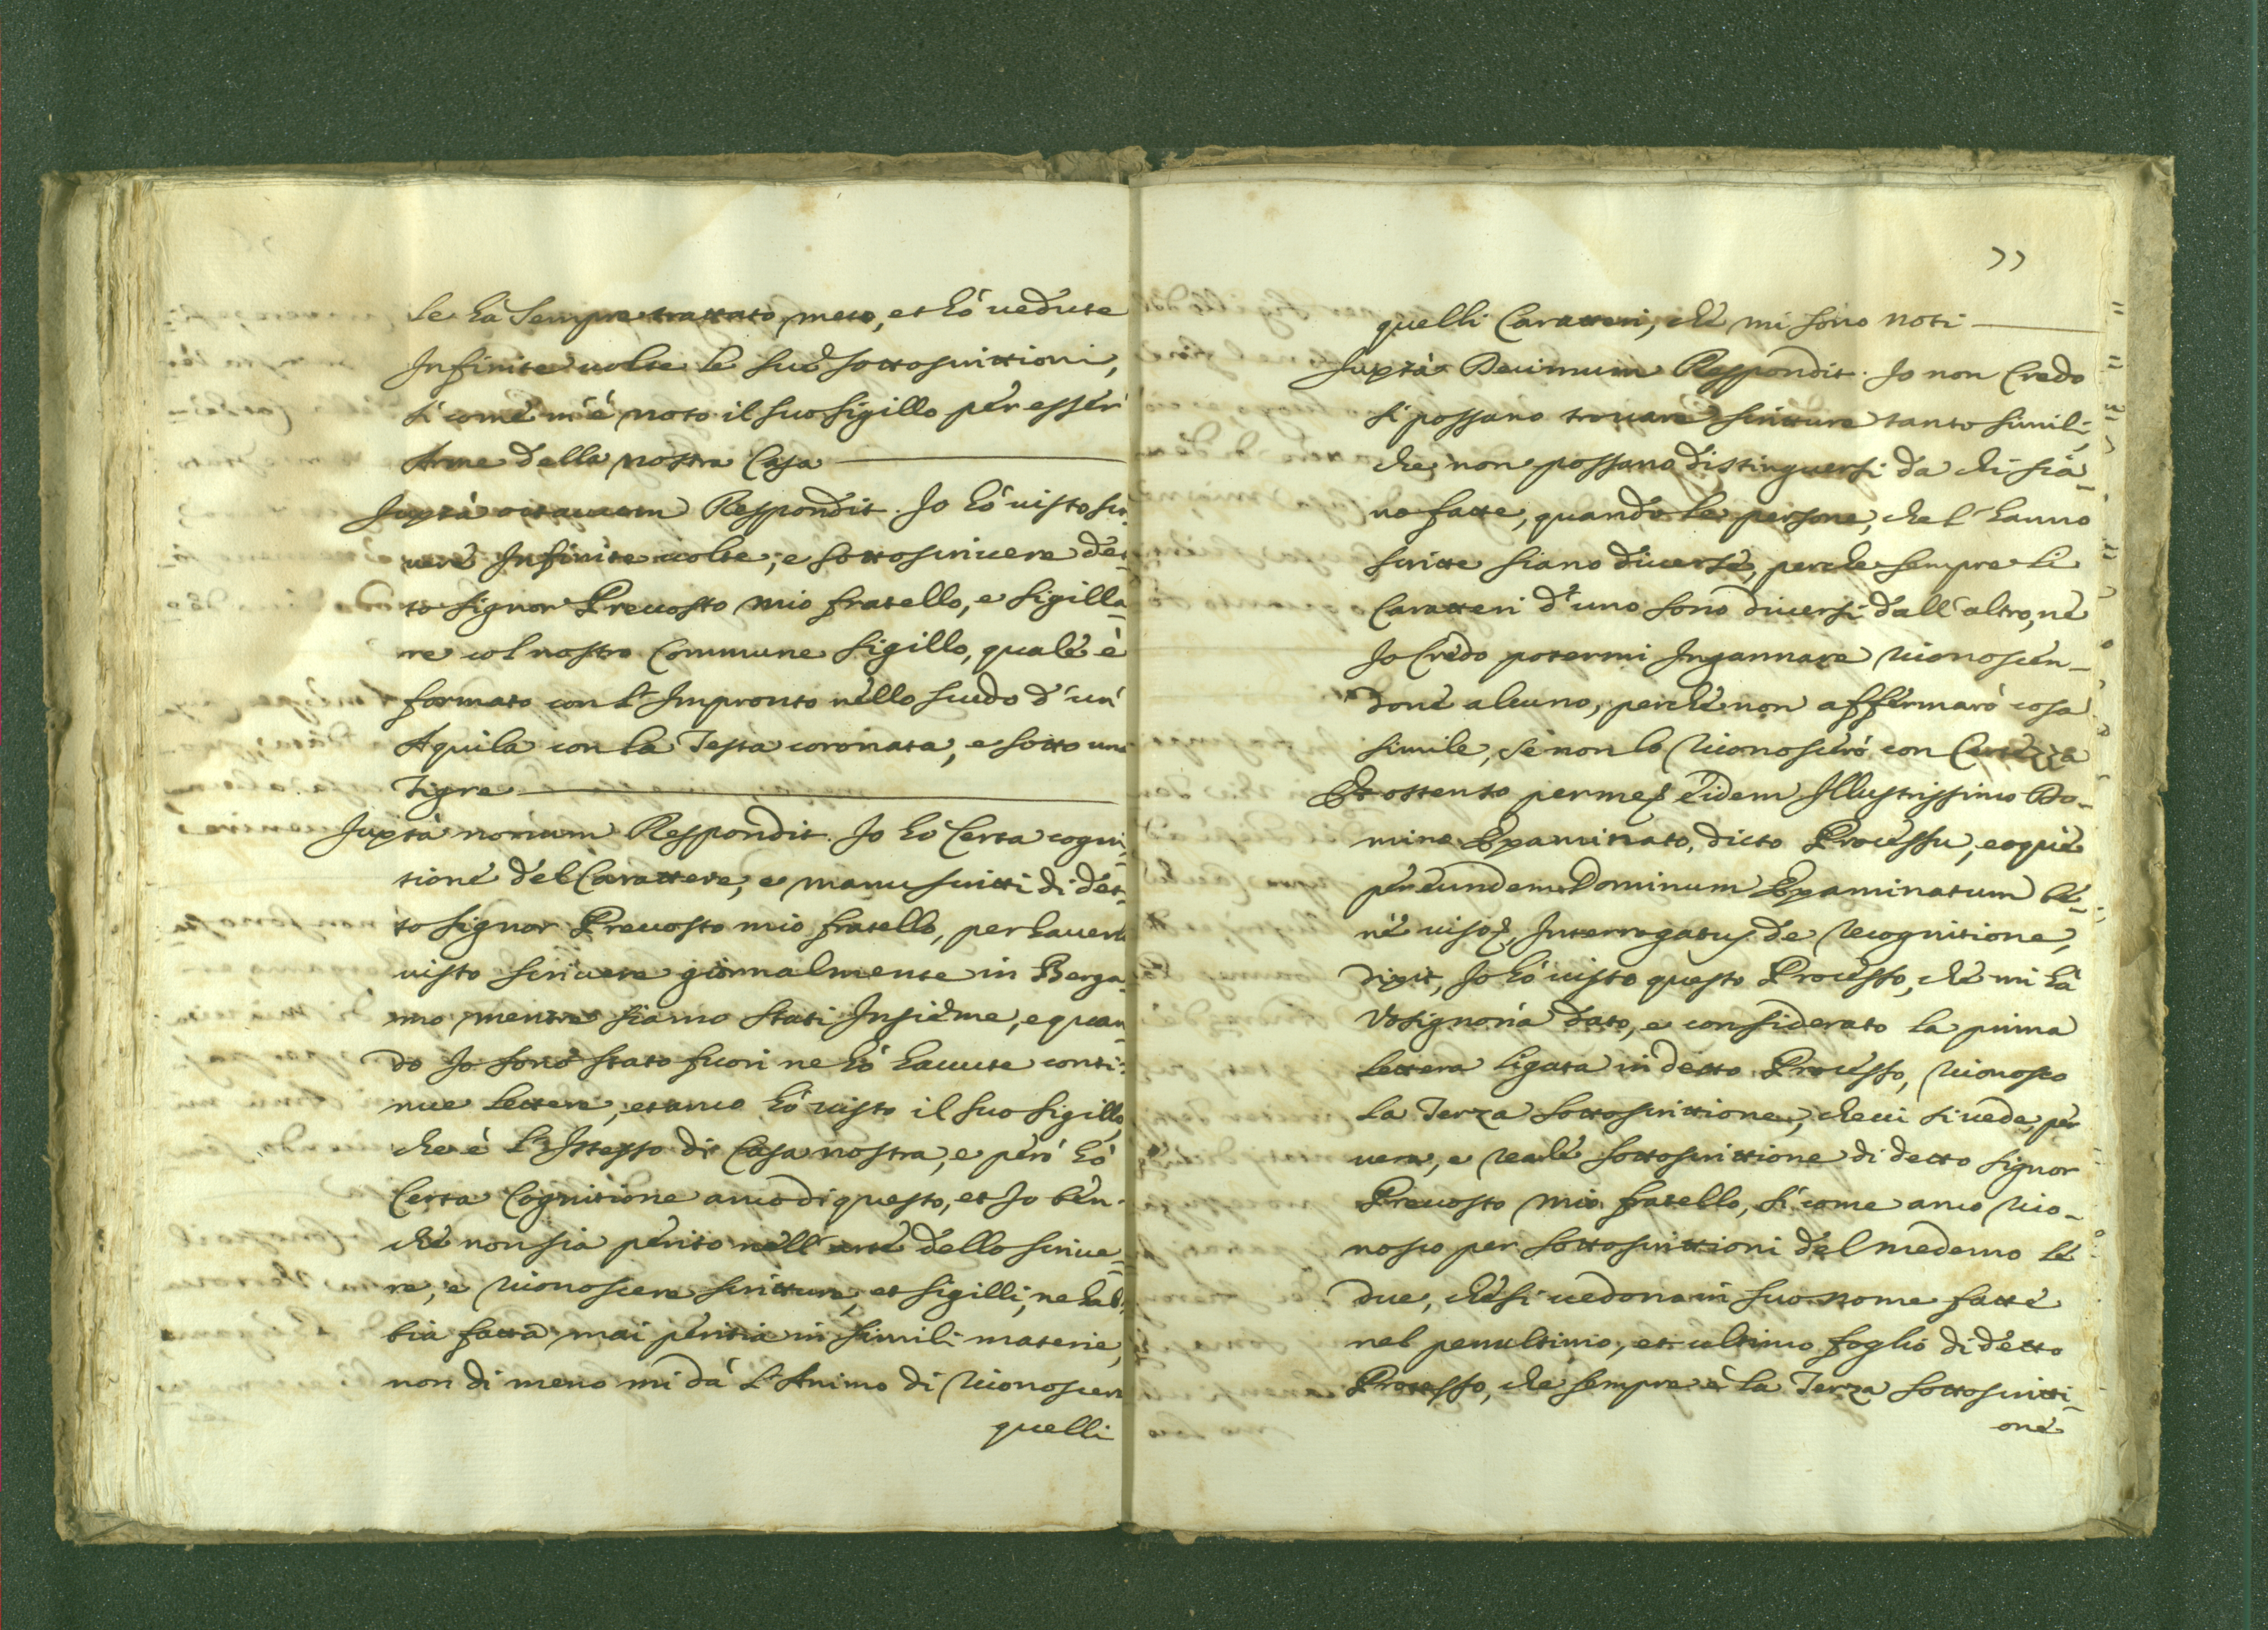 le hà sempre trattato meco, et hò vedute
Infinite volte le sue sottoscrittioni,
sì come m'è noto il suo sigillo per esser
Arme della nostra Casa
Juxtà octauum Respondit. Io hò visto scri-
uere Infinite volte, e sottoscriuere det-
to signor Preuosto mio fratello, e sigilla-
re col nostro Commune sigillo, quale è
formato con l'Impronto nello scudo d'un'
Aquila con la Testa coronata, e sotto una
Tigre
Juxtà nonum Respondit. Io hò Certa cogni-
tione del Carattere, e manuscritti di det-
to signor Preuosto mio fratello, per hauerlo
visto scriuere giornalmente in Berga-
mo mentre siamo stati Insieme, e quan-
do Io sono stato fuori ne hò hauute conti-
nue lettere, et anco hò visto il suo sigillo,
che è l'Istesso di Casa nostra, e però hò
Certa Cognitione anco di questo, et Io ben-
che non sia perito nell'arte dello scriue-
re, e riconoscere scritture, et sigilli, ne hab-
bia fatta mai peritia in simili materie,
non di meno mi dà l'Animo di riconoscere
quelli
77
quelli Caratteri, che mi sono noti
Juxtà Decimum Respondit. Io non Credo
si possano trouare scritture tanto simili,
che non possano distinguersi da chi sia-
no fatte, quando le persone, che l'hanno
scritte siano diuerse, perche sempre li
Caratteri d'uno sono diuersi dall'altro, ne
Io Credo potermi Ingannare riconoscen-
done alcuno, perche non affermarò cosa
simile, se non lo riconoscerò con Certezza
Et ostenso per me eidem Illustrissimo Do-
mino Examinato, dicto Processu, eoque
per eundem Dominum Examinatum be-
ne viso, Interrogatus de recognitione,
dixit, Io hò visto questo Processo, che mi hà
Vosignoria dato, e considerato la prima
lettera ligata in detto Processo, riconosco
la Terza sottoscrittione, che vi si vede, per
vera, e reale sottoscrittione di detto signor
Preuosto mio fratello, sì come anco rico-
nosco per sottoscrittioni del medemo le
due, che si vedono in suo nome fatte
nel penultimo, et ultimo foglio di detto
Processo, che sempre è la Terza sottoscritti-
one